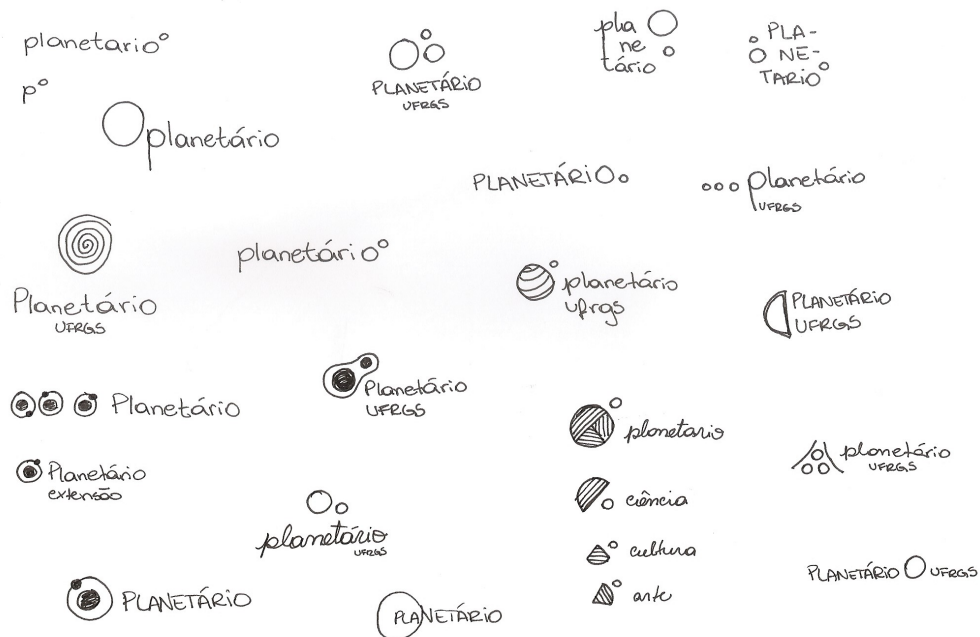 planetario
p
planetário
PLANETÁRIO
UFRGS
pla
ne
tário
PLA-
NE-
TARIO
PLANETÁRIO
planetário
UFRGS
Planetário
UFRGS
planetário
planetário
ufrgs
PLANETÁRIO
UFRGS
Planetário
Planetário
UFRGS
Planetário
extensão
planetário
UFRGS
planetario
ciência
cultura
arte
planetário
UFRGS
PLANETÁRIO
PLANETÁRIO
PLANETÁRIO UFRGS